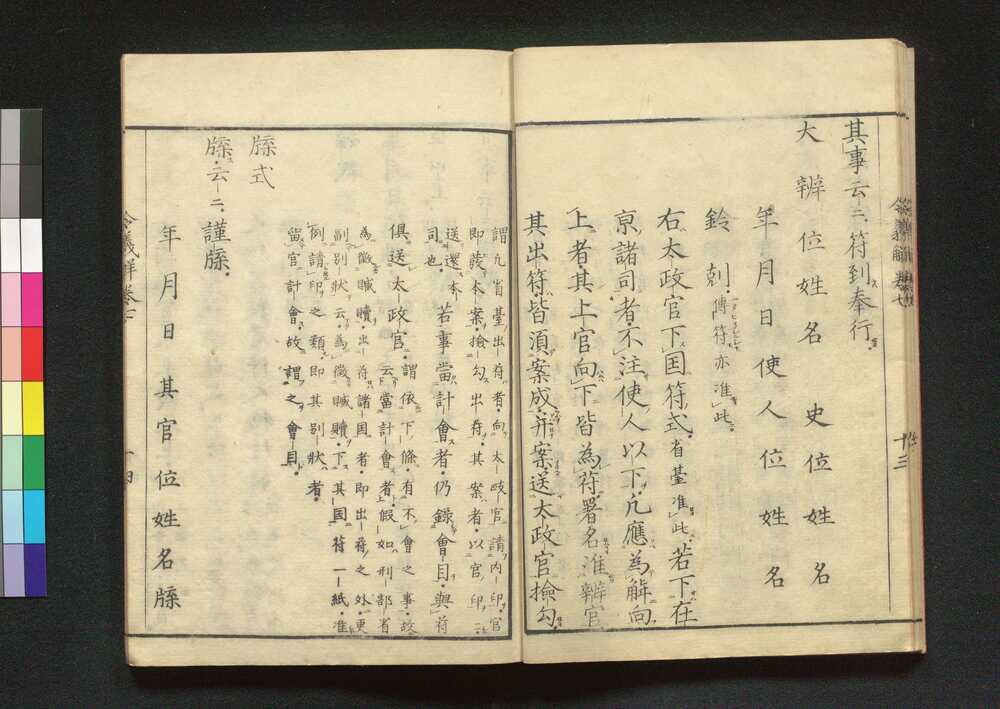 其事云云符到奉行
大辨位姓名 史位姓名
年月日 使人位姓名
鈴剋 傳符亦准此
右太政官下国符式省臺准此若下在
亰諸司者不注使人以下凡應為解向
上者其上官向下皆為符署名准辨官
其出符皆湏案成并案送太政官撿勾
謂凢省臺出符者向太政官請内印官
即蔆本案撿勾出符其案者以官印二
送還本
司也 若事當計會者仍録會目與符
俱送太政官 謂依下條有不會之事故
云當計會者假如刑部省
為徴贓贖出符諸国者即出符之外更
副別状云為徴贓贖下其国符一紙准
例請印之類即其別状者
留官計會故謂之會目
牒式
牒云云謹牒
年月日其官位姓名牒
令義解卷七
十三
令義解卷七
十四